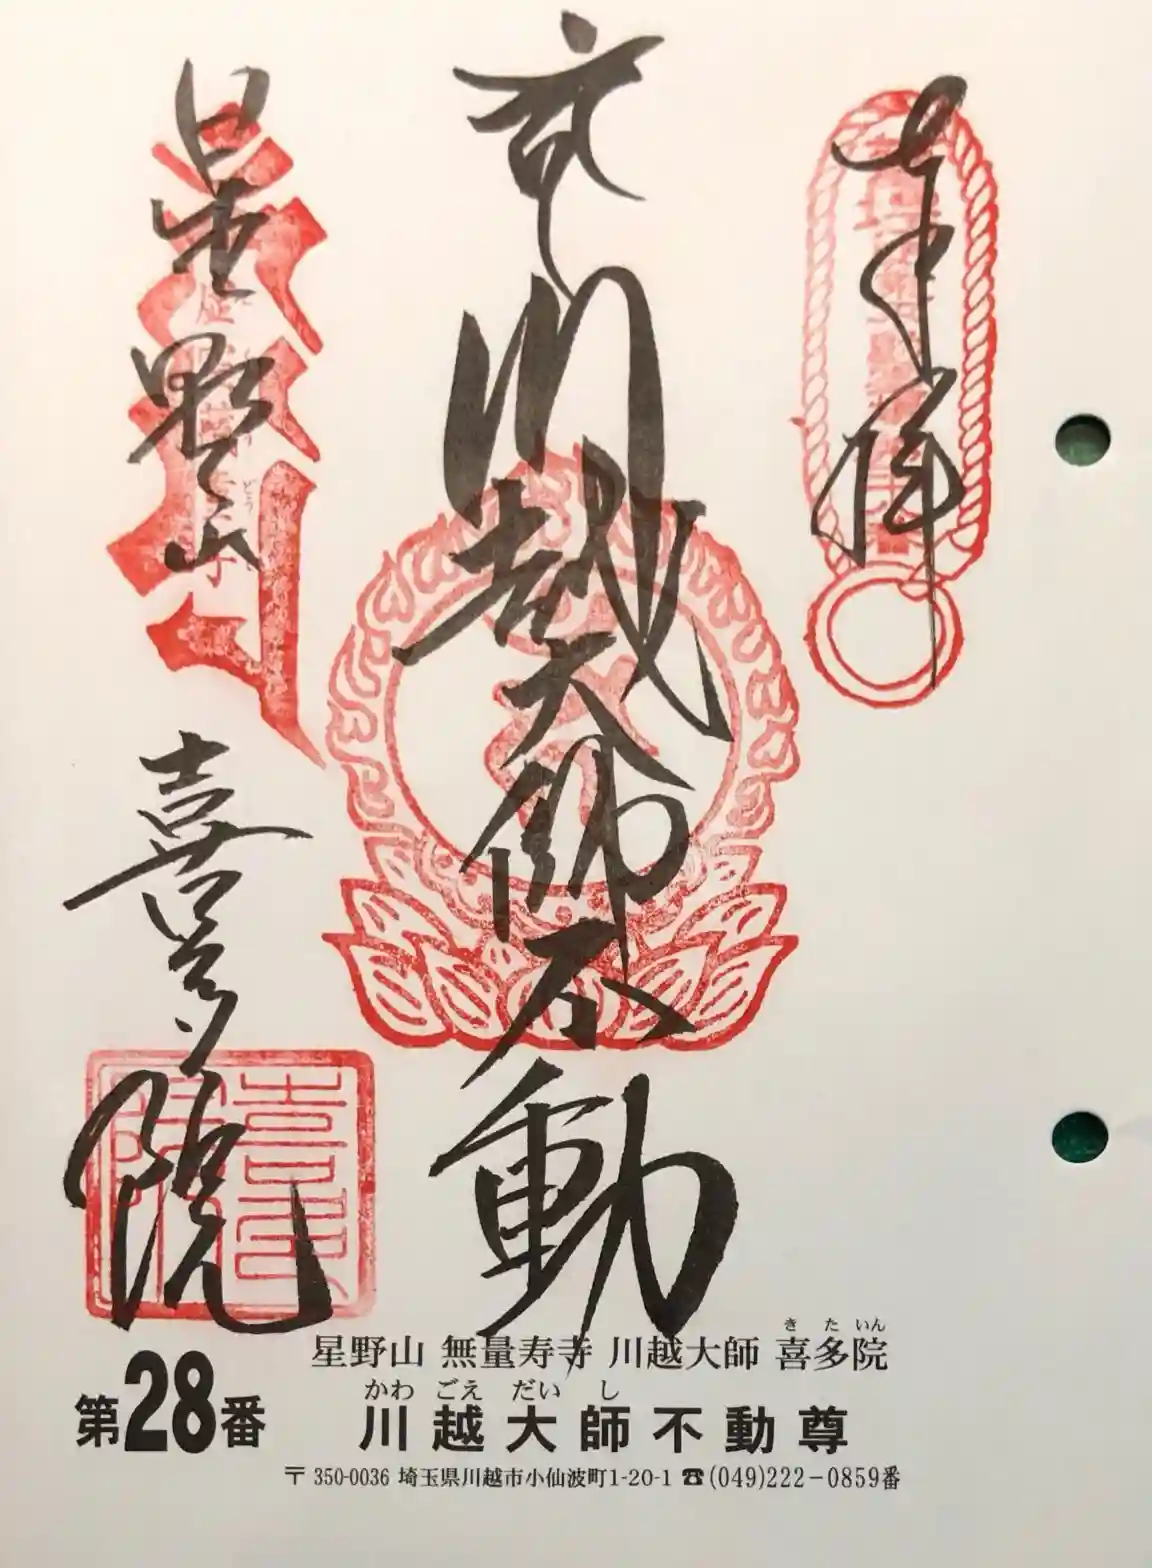 奉拝
川越大師不動
星野山
喜多院
喜多院
きたいん
星野山 無量寿寺 川越大師 喜多院
第28番
かわ ごえ だい し
川越大師不動尊
〒350-0036 埼玉県川越市小仙波町1-20-1 ☎(049)222-0859番